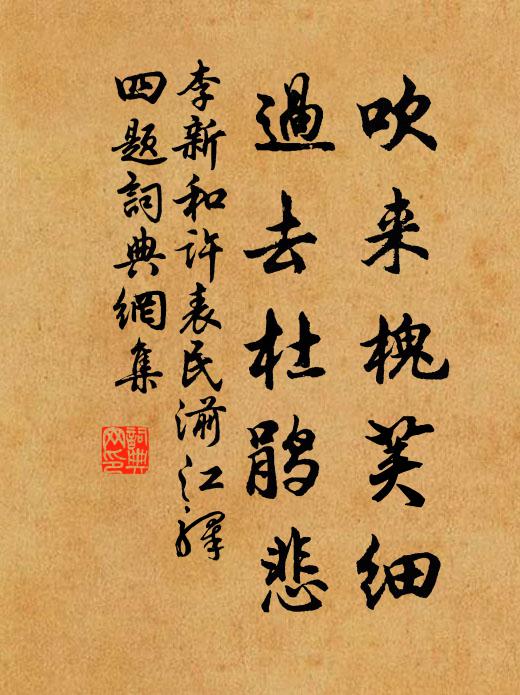 吹来槐芙细
過去杜鹃悲
李新和许表民湔江驛
四题詞典網集
詞典网印